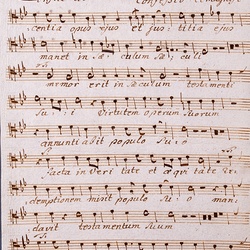 centia opus ejus et justitia ejus
manet in Sæculum Sæculi
memor erit in Sæculum testamenti
Sui Virtutem operum Suorum
annuntiabit populo Suo
facta in Veritate et æquitate
demptionem misit populo Suo man
davit testamentum Suum